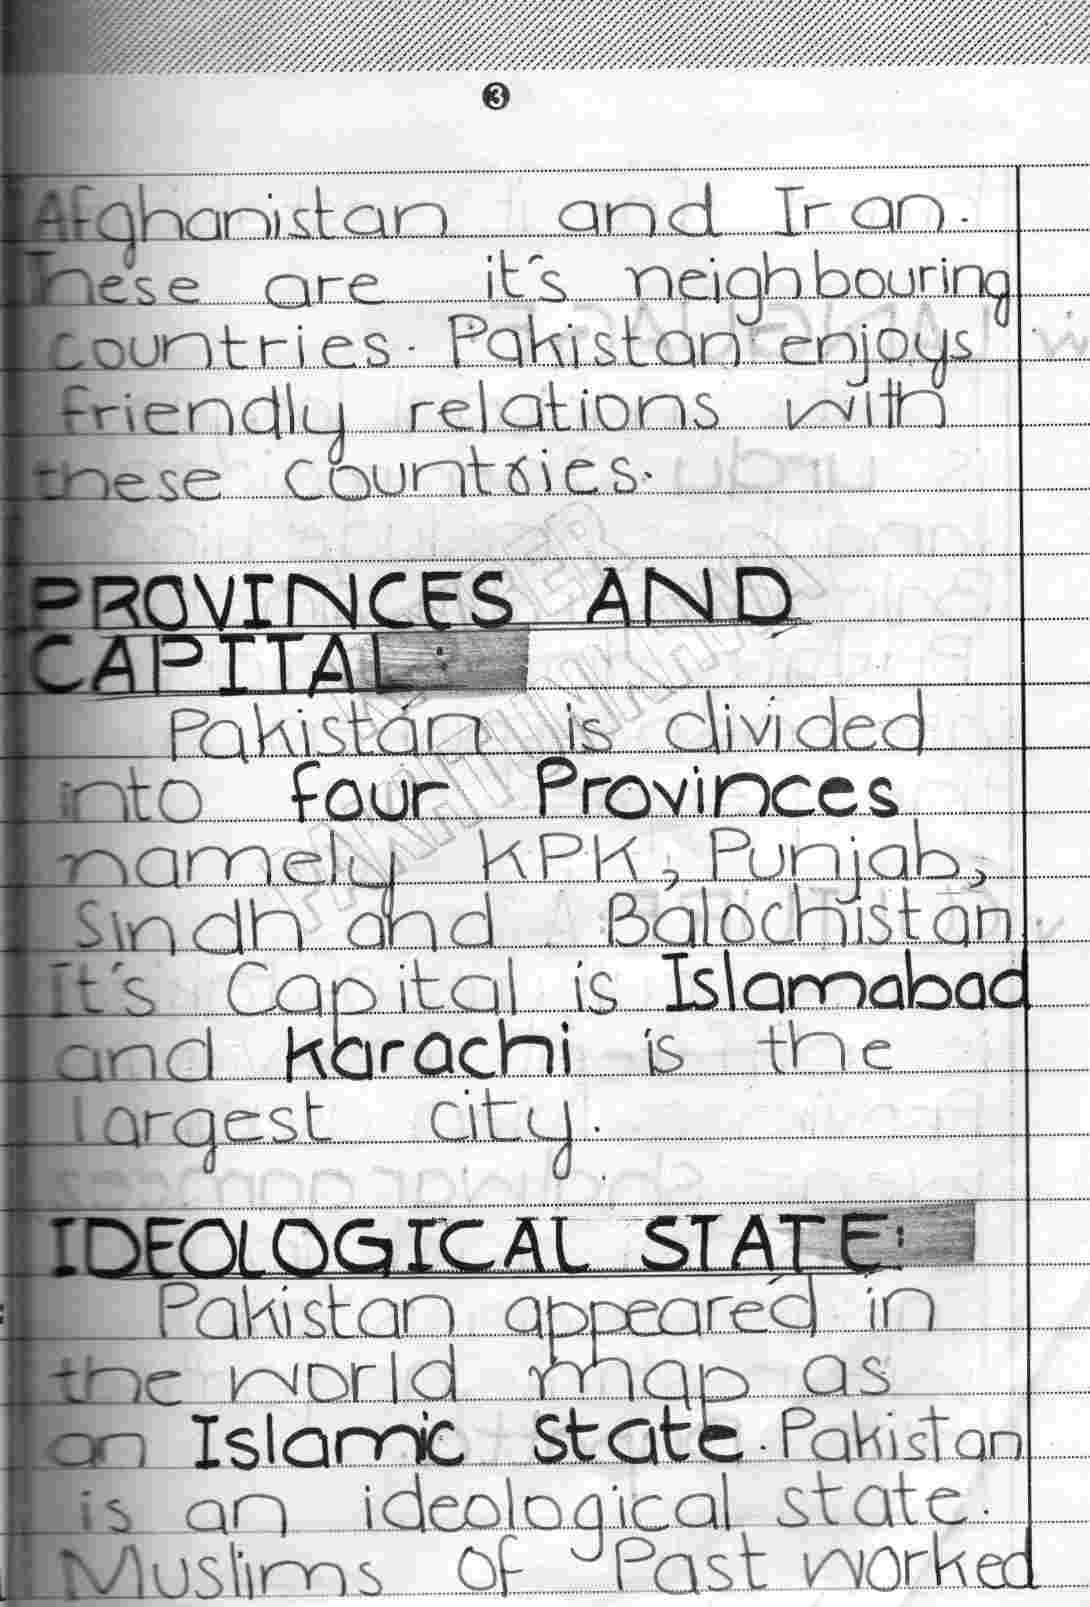 3
Afghanistan and Iran.
These are it's neighbouring
countries. Pakistan enjoys
friendly relations with
these countries.
PROVINCES AND
CAPITAL:
Pakistan is divided
into four Provinces
namely KPK, Punjab,
Sindh and Balochistan.
It's Capital is Islamabad
and karachi is the
largest city.
IDEOLOGICAL STATE:
Pakistan appeared in
the world map as
an Islamic state. Pakistan
is an ideological state.
Muslims of Past worked